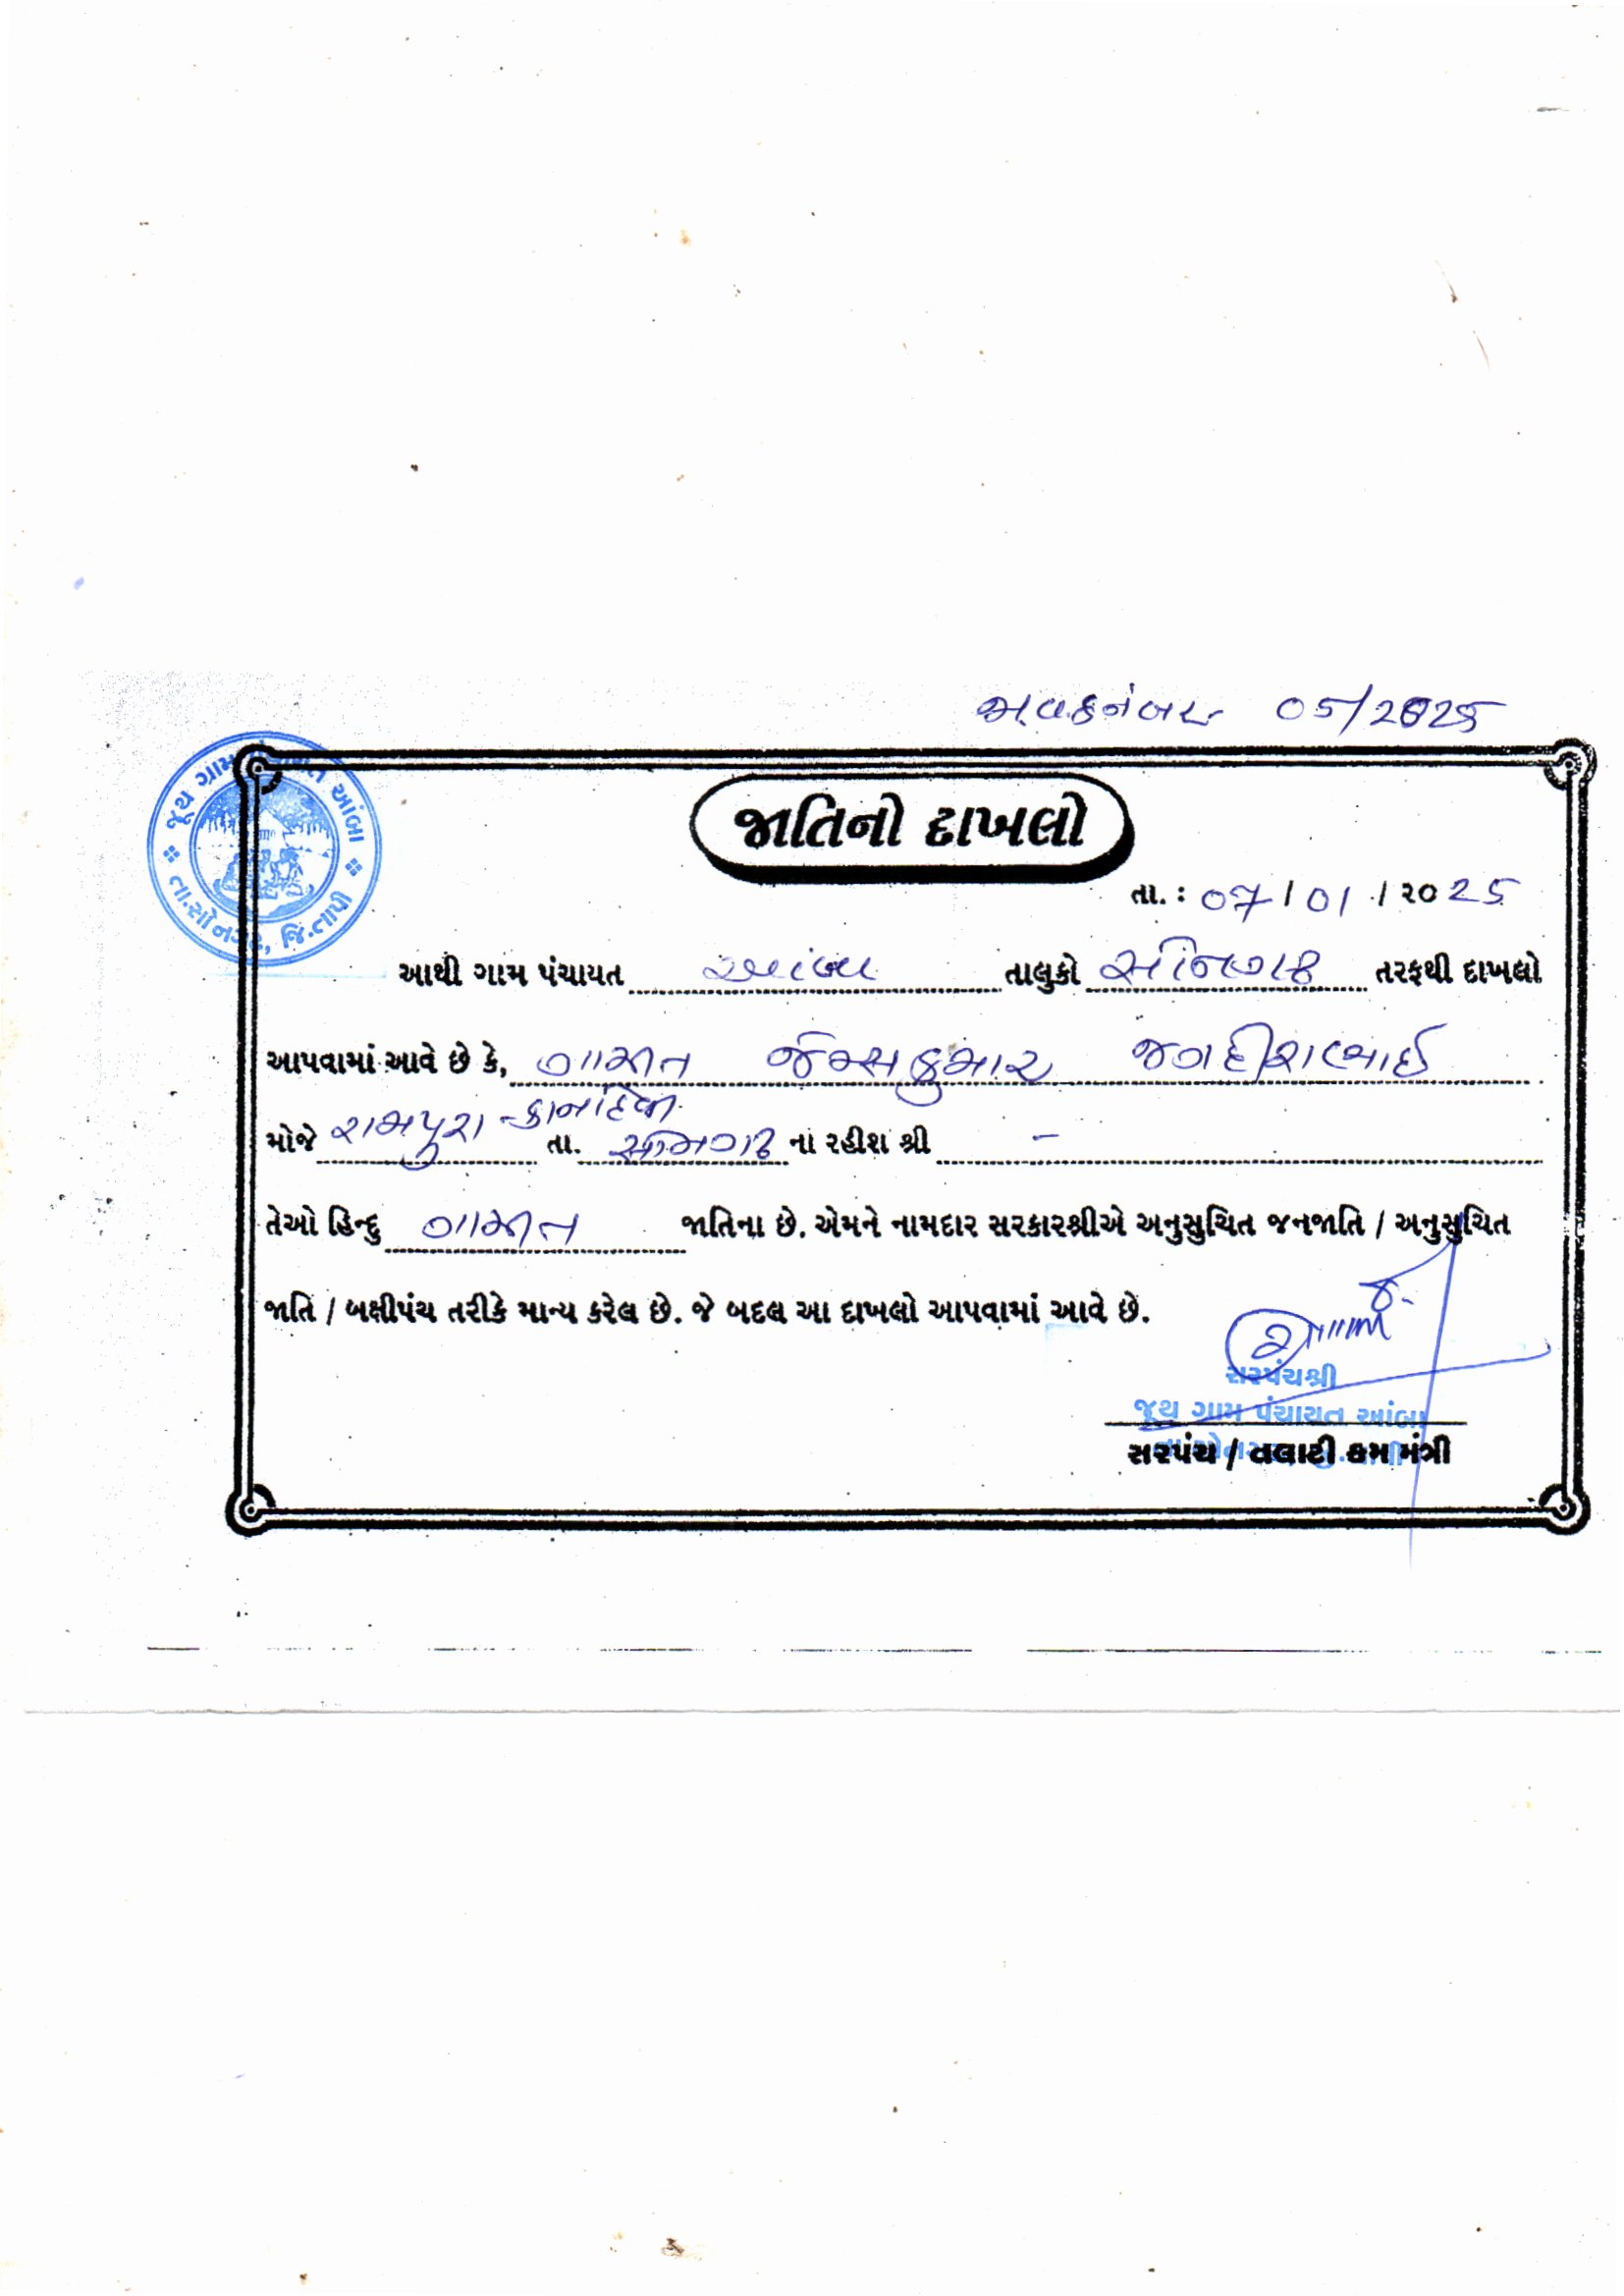 જાવક નંબર 05/2025
જૂથ ગ્રામ પંચાયત આંબા
તા.સોનગઢ, જિ.તાપી
જાતિનો દાખલો
તા. : 07 / 01 / ૨૦25
આથી ગામ પંચાયત આંબા તાલુકો સોનગઢ તરફથી દાખલો
આપવામાં આવે છે કે, ગામીત જેમ્સકુમાર જગદીશભાઈ
મોજે રામપુરા - કાનાદેવી તા. સોનગઢ ના રહીશ શ્રી -
તેઓ હિન્દુ ગામીત જાતિના છે. એમને નામદાર સરકારશ્રીએ અનુસુચિત જનજાતિ / અનુસુચિત
જાતિ / બક્ષીપંચ તરીકે માન્ય કરેલ છે. જે બદલ આ દાખલો આપવામાં આવે છે.
સરપંચશ્રી
જૂથ ગ્રામ પંચાયત આંબા
સરપંચ / તલાટી કમ મંત્રી